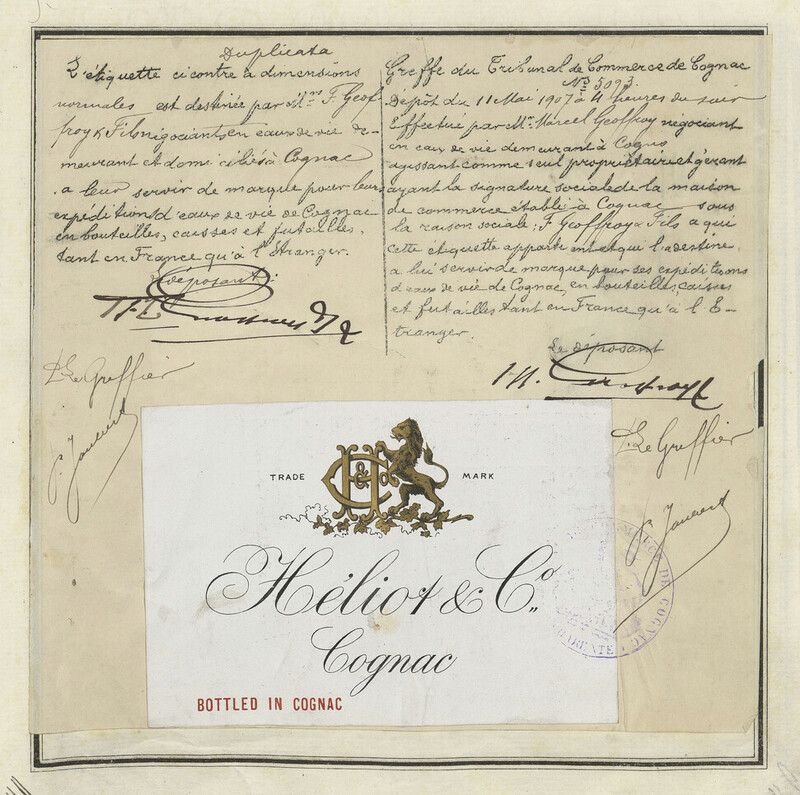 Duplicata
L'étiquette ci contre à dimensions
normales est destinée par Mrs F. Geof-
froy & Fils négociants en eaux de vie de-
meurant et domiciliés à Cognac
a leur servir de marque pour leurs
expéditions d'eaux de vie de Cognac
en bouteilles, caisses et futailles,
tant en France qu'à l'Etranger.
Le déposant:
P. Le Greffier
Greffe du Tribunal de Commerce de Cognac
No 5093
Dépôt du 11 Mai 1907 à 4 heures du soir
Effectué par Mr Marcel Geoffroy négociant
en eaux de vie demeurant à Cognac
agissant comme seul propriétaire et gérant
ayant la signature sociale de la maison
de commerce établie à Cognac sous
la raison sociale: F Geoffroy & Fils a qui
cette étiquette appartient et qui l'a destine
a lui servir de marque pour ses expéditions
d'eaux de vie de Cognac, en bouteilles, caisses
et futailles tant en France qu'à l'E-
tranger.
Le déposant
P. Le Greffier
TRADE MARK
H & Co
Héliot & Co.
Cognac
BOTTLED IN COGNAC
COMMERCE DE COGNAC
CHARENTE